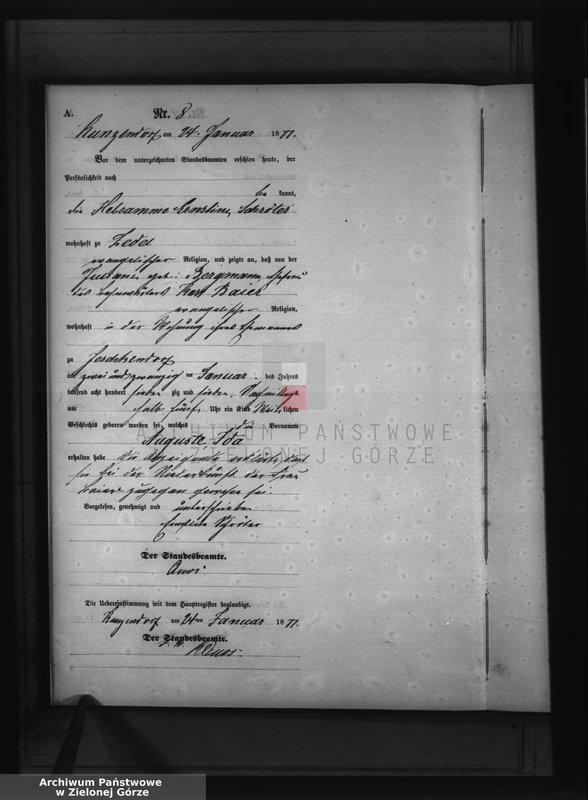 A.
Nr. 8.
Kunzendorf am 24. Januar 1877.
Vor dem unterzeichneten Standesbeamten erschien heute, der
Persönlichkeit nach
be kannt,
die Hebamme Ernstine Schröter
wohnhaft zu Zedel
evangelischer Religion, und zeigte an, daß von der
Juliane geb: Bergmann, Ehefrau
des Karl Baier
evangelischer Religion,
wohnhaft in der Wohnung ihres Ehemannes
zu Jeschkendorf
am zwei und zwanzig ten Januar des Jahres
tausend acht hundert sieben zig und sieben, Nachmittags
um halb fünf Uhr ein Kind weib lichen
Geschlechts geboren worden sei, welches die Vornamen
Auguste, Ida
erhalten habe. Die Anzeigende erklärte, daß
sie bei der Niederkunft der Frau
Baier zugegen gewesen sei.
Vorgelesen, genehmigt und unterschrieben
Ernstine Schröter
Der Standesbeamte.
Die Uebereinstimmung mit dem Hauptregister beglaubigt.
Kunzendorf am 24ten Januar 1877.
Der Standesbeamte.
ARCHIWUM PAŃSTWOWE
W ZIELONEJ GÓRZE
Archiwum Państwowe
w Zielonej Górze